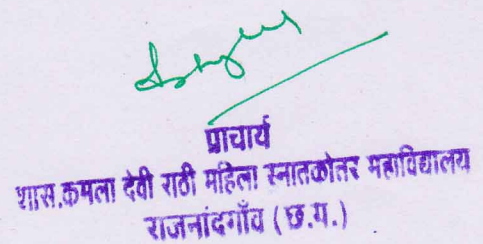 प्राचार्य
शास.कमला देवी राठी महिला स्नातकोतर महाविद्यालय
राजनांदगाँव (छ.ग.)